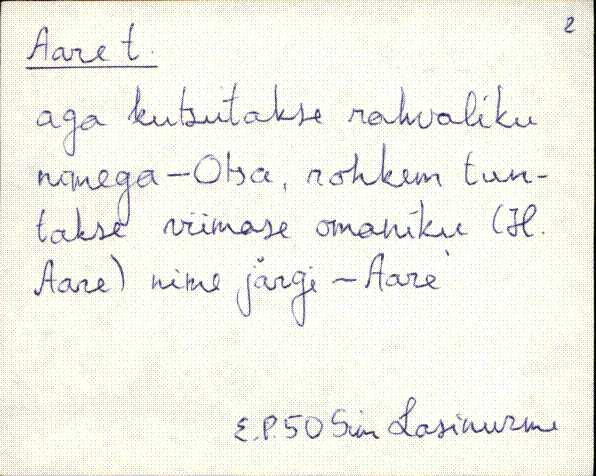 2
Aare t.
aga kutsutakse rahvaliku
nimega - Otsa, rohkem tun-
takse viimase omaniku (H.
Aare) nime järgi - Aare
E.P. 50 Sim Lasinurme